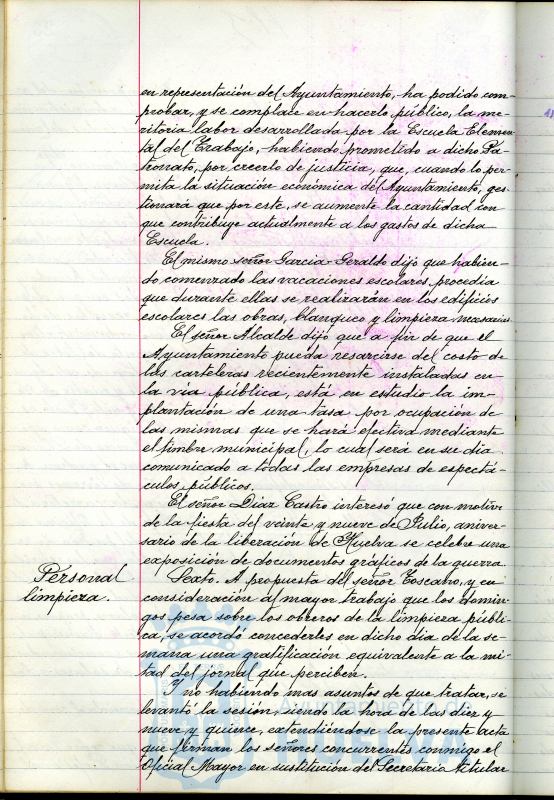 en representación del Ayuntamiento, ha podido com-
probar, y se complace en hacerlo público, la me-
ritoria labor desarrollada por la Escuela Elemen-
tal del Trabajo, habiendo prometido a dicho Pa-
tronato, por creerlo de justicia, que, cuando lo per-
mita la situación económica del Ayuntamiento, ges-
tionará que por este, se aumente la cantidad con
que contribuye actualmente a los gastos de dicha
Escuela.
El mismo señor Garcia-Geraldo dijó que habien-
do comenzado las vacaciones escolares procedia
que durante ellas se realizarán en los edificios
escolares las obras, blanqueo y limpieza necesarias
El señor Alcalde dijó que a fin de que el
Ayuntamiento pueda resarcirse del costo de
las carteleras recientemente instaladas en
la via pública, está en estudio la im-
plantación de una tasa por ocupación de
las mismas que se hará efectiva mediante
el timbre municipal, lo cual será en su dia
comunicado a todas las empresas de espectá-
culos públicos.
El señor Diaz Castro interesó que con motivo
de la fiesta del veinte y nueve de Julio, aniver-
sario de la liberación de Huelva se celebre una
exposición de documentos gráficos de la guerra.
Personal
limpieza.
Sexto. A propuesta del señor Toscano, y en
consideración al mayor trabajo que los domin-
gos pesa sobre los obreros de la limpieza públi-
ca, se acordó concederles en dicho dia de la se-
mana una gratificación equivalente a la mi-
tad del jornal que perciben.
Y no habiendo mas asuntos de que tratar, se
levantó la sesión, siendo la hora de las diez y
nueve y quince, extendiéndose la presente acta
que firman los señores concurrentes conmigo el
Oficial Mayor en sustitución del Secretario titular
Ayuntamiento de
HUELVA